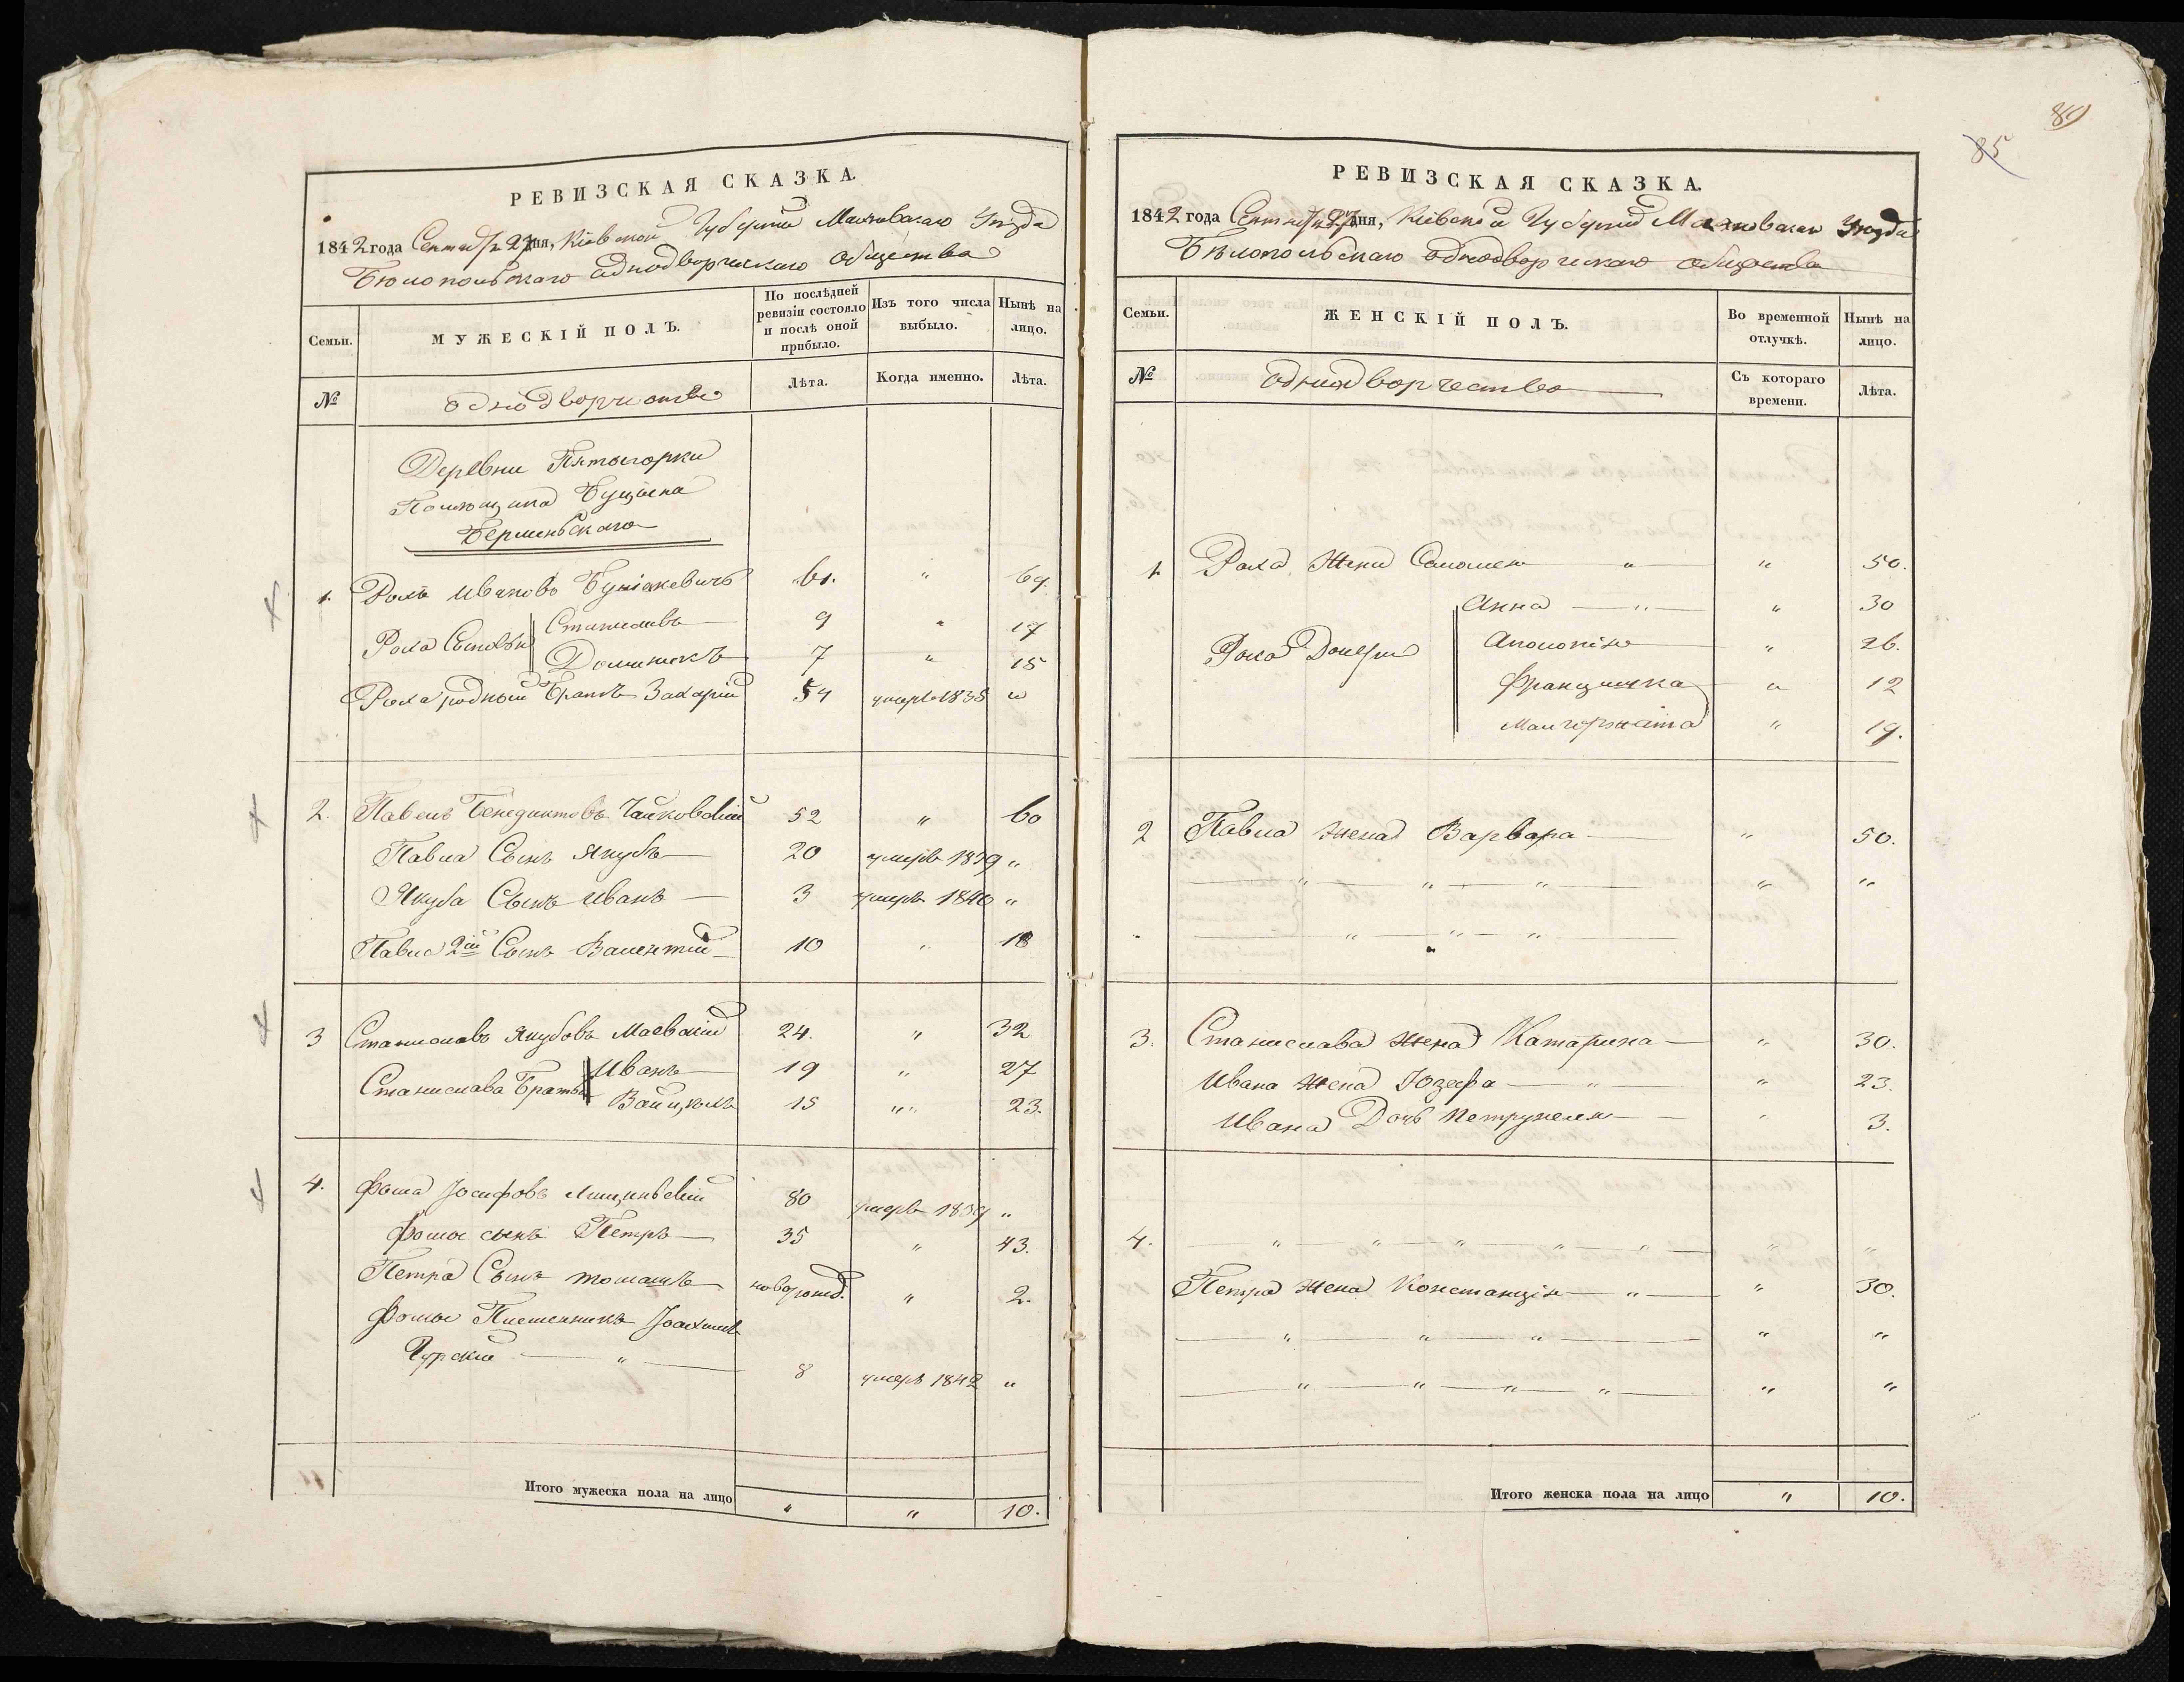 89
85
РЕВИЗСКАЯ СКАЗКА.
1842 года Сентяб. 27 дня, Кіевской Губерніи Махновскаго Уѣзда
Бѣлопольскаго однодворческаго общества
Семьи.
МУЖЕСКІЙ ПОЛЪ.
По послѣдней ревизіи состояло и послѣ оной прибыло.
Изъ того числа выбыло.
Нынѣ на лицо.
№
однодворчество
Лѣта.
Когда именно.
Лѣта.
Деревни Пятыгорки
Помѣщика
1. Рохъ Ивановъ 61. " 69.
Роха Сыновья Станиславъ 9 " 17
Доминикъ 7 " 15
Роха родный Братъ Захарій 54 умеръ 1835 "
2. Павелъ Бенедиктовъ Чайковскій 52 " 60
Павла Сынъ Якубъ 20 умеръ 1839 "
Якуба Сынъ Иванъ 3 умеръ 1840 "
Павла 2й Сынъ Валентій 10 " 18
3 Станиславъ Якубовъ Маевскій 24. " 32
Станислава Братья Иванъ 19 " 27
Войцѣхъ 15 " 23.
4. Фома Іосифовъ 80 умеръ 1839 "
Фомы сынъ Петръ 35 " 43.
Петра Сынъ Томашъ новорожд. " 2.
Фомы Племенникъ Іоахимъ
Гурскій " 8 умеръ 1842 "
Итого мужеска пола на лицо " " 10.
РЕВИЗСКАЯ СКАЗКА.
1842 года Сентяб. 27 дня, Кіевской Губерніи Махновскаго Уѣзда
Бѣлопольскаго однодворческаго общества
Семьи.
ЖЕНСКІЙ ПОЛЪ.
Во временной отлучкѣ.
Нынѣ на лицо.
№
однодворчество
Съ котораго времени.
Лѣта.
1. Роха Жена Саломея " " 50.
Анна " " 30
Роха Дочери Аполонія " 26.
Францишка " 12
Малгоржата " 19.
2 Павла жена Варвара " 50.
" " " " "
" " "
3. Станислава жена Катарина " 30.
Ивана жена Юзефа " " 23.
Ивана Дочь Петрунеля " 3.
4. " " " " " " "
Петра жена Констанція " " 30.
" " " " "
" " " " " "
Итого женска пола на лицо " 10.